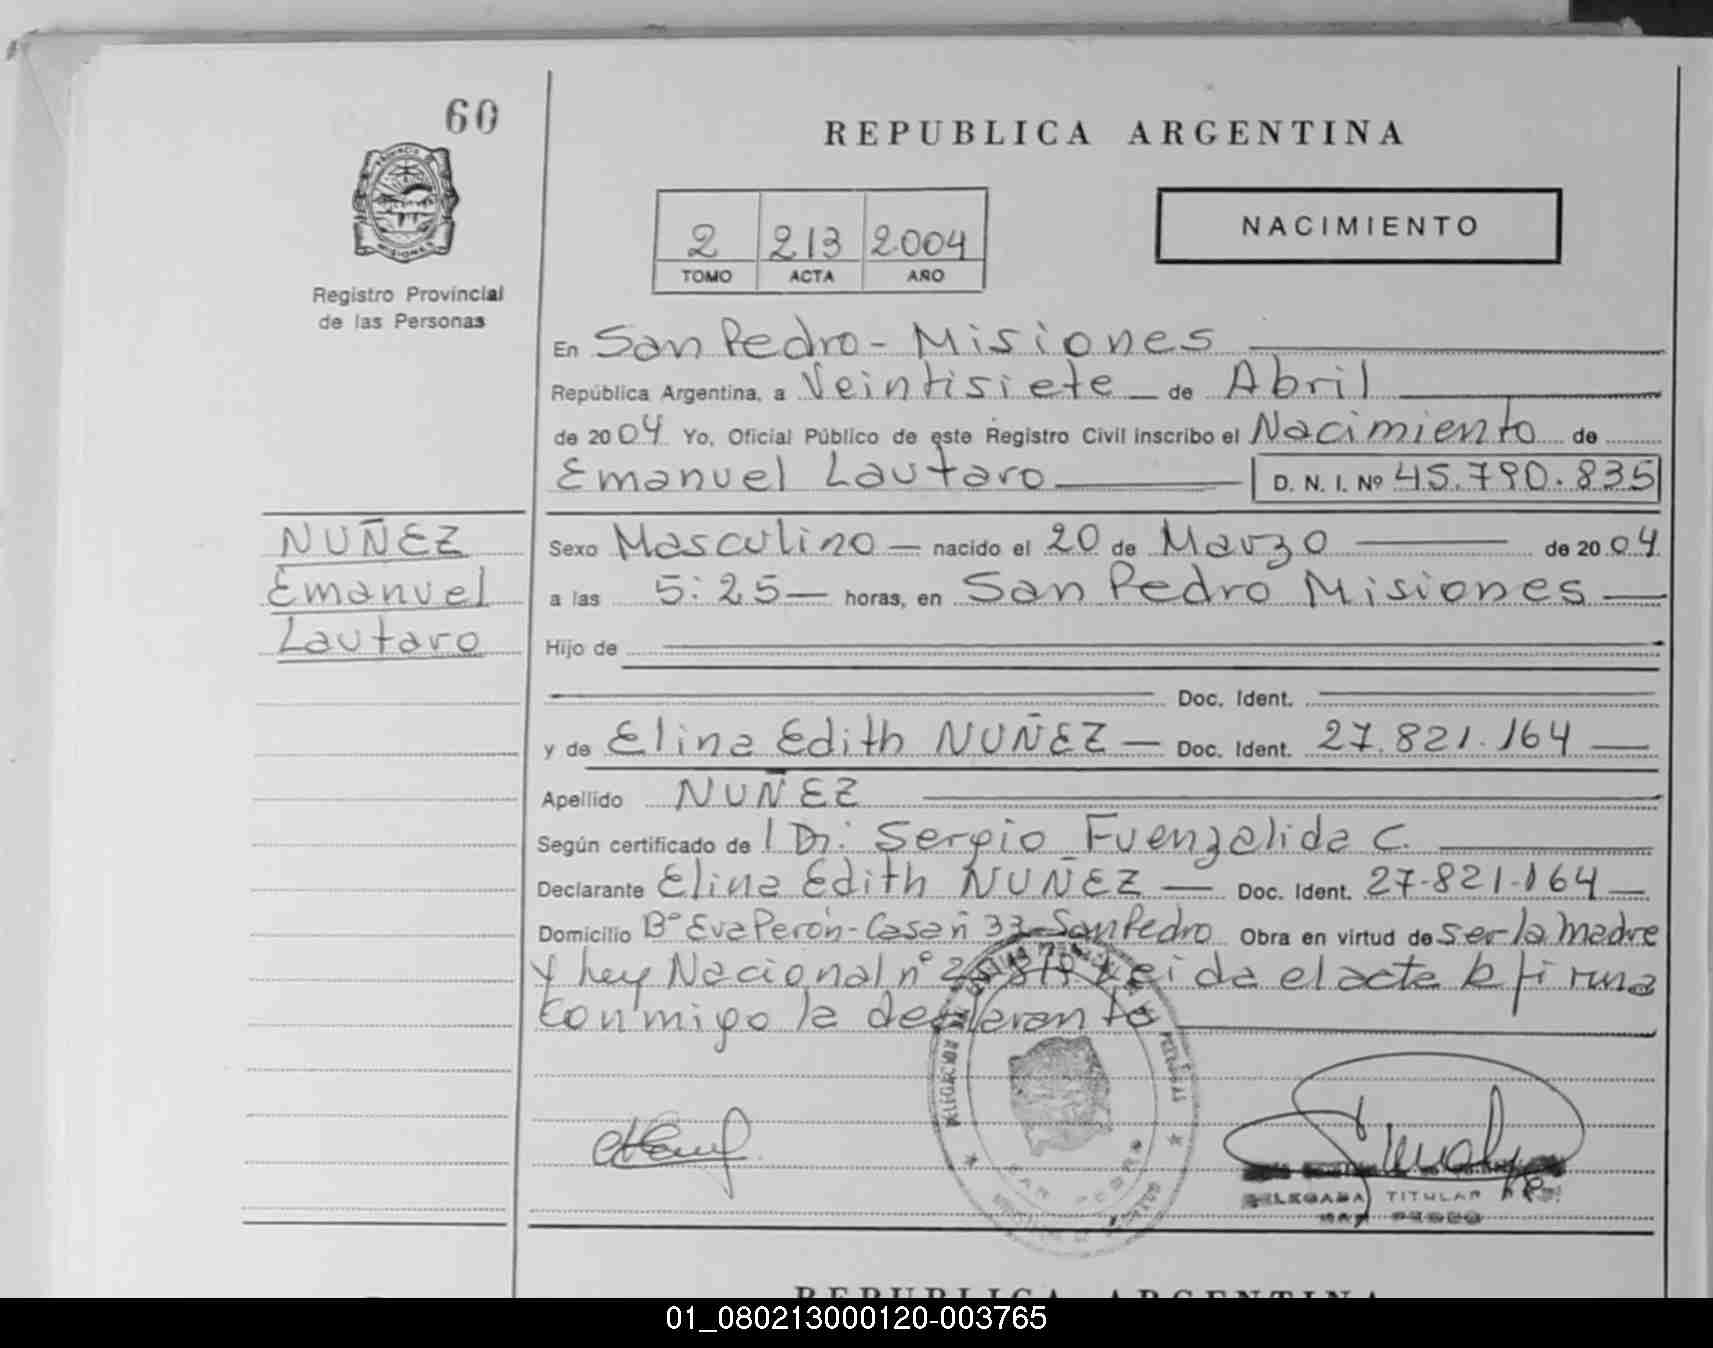 60
REPUBLICA ARGENTINA
NACIMIENTO
2 213 2004
TOMO ACTA AÑO
Registro Provincial
de las Personas
En San Pedro - Misiones
República Argentina, a Veintisiete de Abril
de 2004 Yo, Oficial Público de este Registro Civil inscribo el Nacimiento de
Emanuel Lautaro D. N. I. Nº 45.790.835
NUÑEZ
Emanuel
Lautaro
Sexo Masculino nacido el 20 de Marzo de 2004
a las 5:25 horas, en San Pedro Misiones
Hijo de
Doc. Ident.
y de Elina Edith NUÑEZ Doc. Ident. 27.821.164
Apellido NUÑEZ
Según certificado de Dr: Sergio Fuenzalida C.
Declarante Elina Edith NUÑEZ Doc. Ident. 27-821-164
Domicilio Bº Eva Perón - Casa ñ 33 - San Pedro Obra en virtud de ser la madre
y Ley Nacional nº Leida el acta la firma
conmigo la declarante
DELEGADA TITULAR
SAN PEDRO
REPUBLICA ARGENTINA
01_080213000120-003765